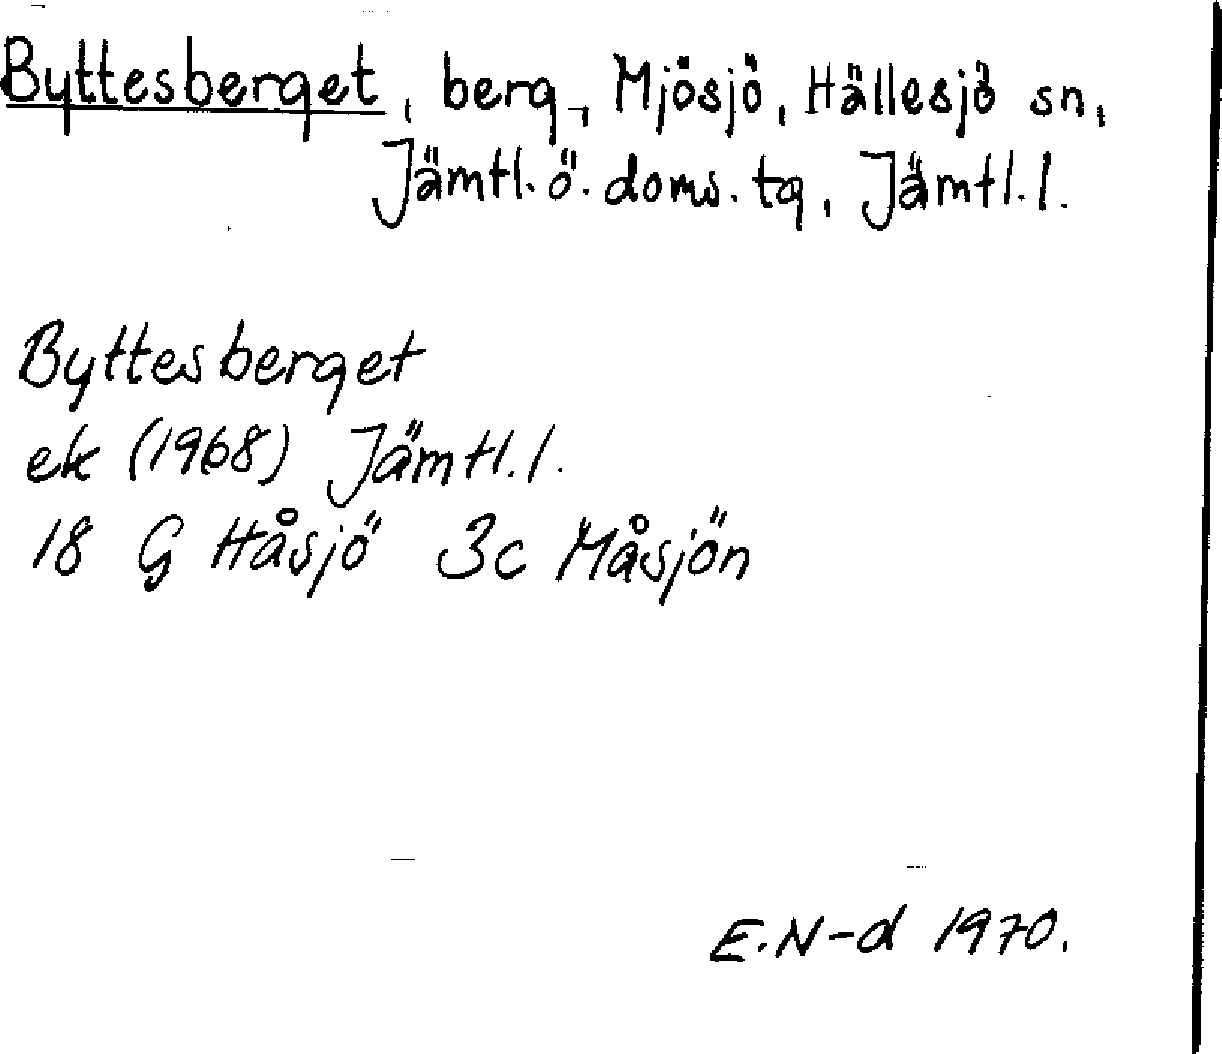 Byttesberget, berg, Mjösjö, Hällesjö sn,
Jämtl. ö. doms. tg, Jämtl. l.
Byttesberget
ek (1968) Jämtl. l.
18 G Håsjö 3c Måsjön
E. N-d 1970.